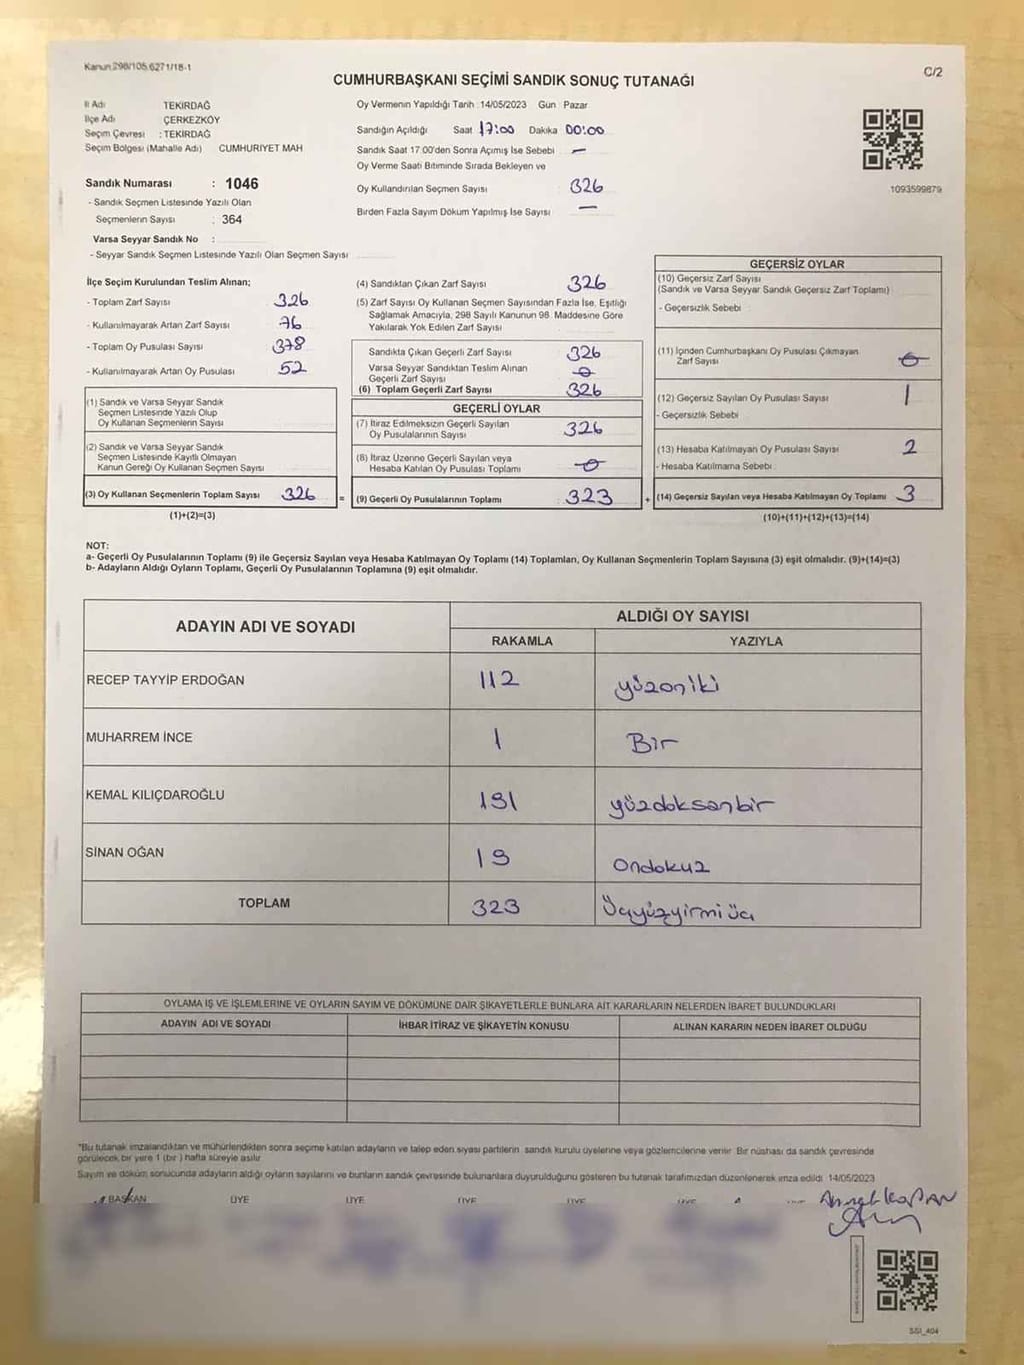 Kanun:298/105,6271/18-1
CUMHURBAŞKANI SEÇİMİ SANDIK SONUÇ TUTANAĞI
C/2
İl Adı TEKİRDAĞ
İlçe Adı ÇERKEZKÖY
Seçim Çevresi : TEKİRDAĞ
Seçim Bölgesi (Mahalle Adı) CUMHURIYET MAH
Sandık Numarası : 1046
- Sandık Seçmen Listesinde Yazılı Olan
Seçmenlerin Sayısı : 364
Varsa Seyyar Sandık No :
- Seyyar Sandık Seçmen Listesinde Yazılı Olan Seçmen Sayısı
Oy Vermenin Yapıldığı Tarih :14/05/2023 Gün : Pazar
Sandığın Açıldığı Saat 17:00 Dakika 00:00
Sandık Saat 17.00'den Sonra Açımış İse Sebebi —
Oy Verme Saati Bitiminde Sırada Bekleyen ve
Oy Kullandırılan Seçmen Sayısı 326
Birden Fazla Sayım Döküm Yapılmış İse Sayısı —
1093599879
İlçe Seçim Kurulundan Teslim Alınan;
- Toplam Zarf Sayısı 326
- Kullanılmayarak Artan Zarf Sayısı 76
- Toplam Oy Pusulası Sayısı 378
- Kullanılmayarak Artan Oy Pusulası 52
(1) Sandık ve Varsa Seyyar Sandık
Seçmen Listesinde Yazılı Olup
Oy Kullanan Seçmenlerin Sayısı
(2) Sandık ve Varsa Seyyar Sandık
Seçmen Listesinde Kayıtlı Olmayan
Kanun Gereği Oy Kullanan Seçmen Sayısı
(3) Oy Kullanan Seçmenlerin Toplam Sayısı 326 =
(1)+(2)=(3)
(4) Sandıktan Çıkan Zarf Sayısı 326
(5) Zarf Sayısı Oy Kullanan Seçmen Sayısından Fazla İse, Eşitliği
Sağlamak Amacıyla, 298 Sayılı Kanunun 98. Maddesine Göre
Yakılarak Yok Edilen Zarf Sayısı
Sandıkta Çıkan Geçerli Zarf Sayısı 326
Varsa Seyyar Sandıktan Teslim Alınan
Geçerli Zarf Sayısı 0
(6) Toplam Geçerli Zarf Sayısı 326
GEÇERLİ OYLAR
(7) İtiraz Edilmeksizin Geçerli Sayılan
Oy Pusulalarının Sayısı 326
(8) İtiraz Üzerine Geçerli Sayılan veya
Hesaba Katılan Oy Pusulası Toplamı 0
(9) Geçerli Oy Pusulalarının Toplamı : 323 +
GEÇERSİZ OYLAR
(10) Geçersiz Zarf Sayısı
(Sandık ve Varsa Seyyar Sandık Geçersiz Zarf Toplamı)
- Geçersizlik Sebebi
(11) İçinden Cumhurbaşkanı Oy Pusulası Çıkmayan
Zarf Sayısı 0
(12) Geçersiz Sayılan Oy Pusulası Sayısı 1
- Geçersizlik Sebebi
(13) Hesaba Katılmayan Oy Pusulası Sayısı 2
- Hesaba Katılmama Sebebi
(14) Geçersiz Sayılan veya Hesaba Katılmayan Oy Toplamı 3
(10)+(11)+(12)+(13)=(14)
NOT:
a- Geçerli Oy Pusulalarının Toplamı (9) ile Geçersiz Sayılan veya Hesaba Katılmayan Oy Toplamı (14) Toplamları, Oy Kullanan Seçmenlerin Toplam Sayısına (3) eşit olmalıdır. (9)+(14)=(3)
b- Adayların Aldığı Oyların Toplamı, Geçerli Oy Pusulalarının Toplamına (9) eşit olmalıdır.
ADAYIN ADI VE SOYADI ALDIĞI OY SAYISI
RAKAMLA YAZIYLA
RECEP TAYYİP ERDOĞAN 112 yüzoniki
MUHARREM İNCE 1 Bir
KEMAL KILIÇDAROĞLU 191 yüzdoksanbir
SİNAN OĞAN 19 Ondokuz
TOPLAM 323 Üçyüzyirmiüç
OYLAMA İŞ VE İŞLEMLERİNE VE OYLARIN SAYIM VE DÖKÜMÜNE DAİR ŞİKAYETLERLE BUNLARA AİT KARARLARIN NELERDEN İBARET BULUNDUKLARI
ADAYIN ADI VE SOYADI İHBAR İTİRAZ VE ŞİKAYETİN KONUSU ALINAN KARARIN NEDEN İBARET OLDUĞU
*Bu tutanak imzalandıktan ve mühürlendikten sonra seçime katılan adayların ve talep eden siyasi partilerin sandık kurulu üyelerine veya gözlemcilerine verilir. Bir nüshası da sandık çevresinde
görülecek bir yere 1 (bir) hafta süreyle asılır.
Sayım ve döküm sonucunda adayların aldığı oyların sayılarını ve bunların sandık çevresinde bulunanlara duyurulduğunu gösteren bu tutanak tarafımızdan düzenlenerek imza edildi. 14/05/2023
BAŞKAN ÜYE ÜYE ÜYE ÜYE ÜYE
SSI_404